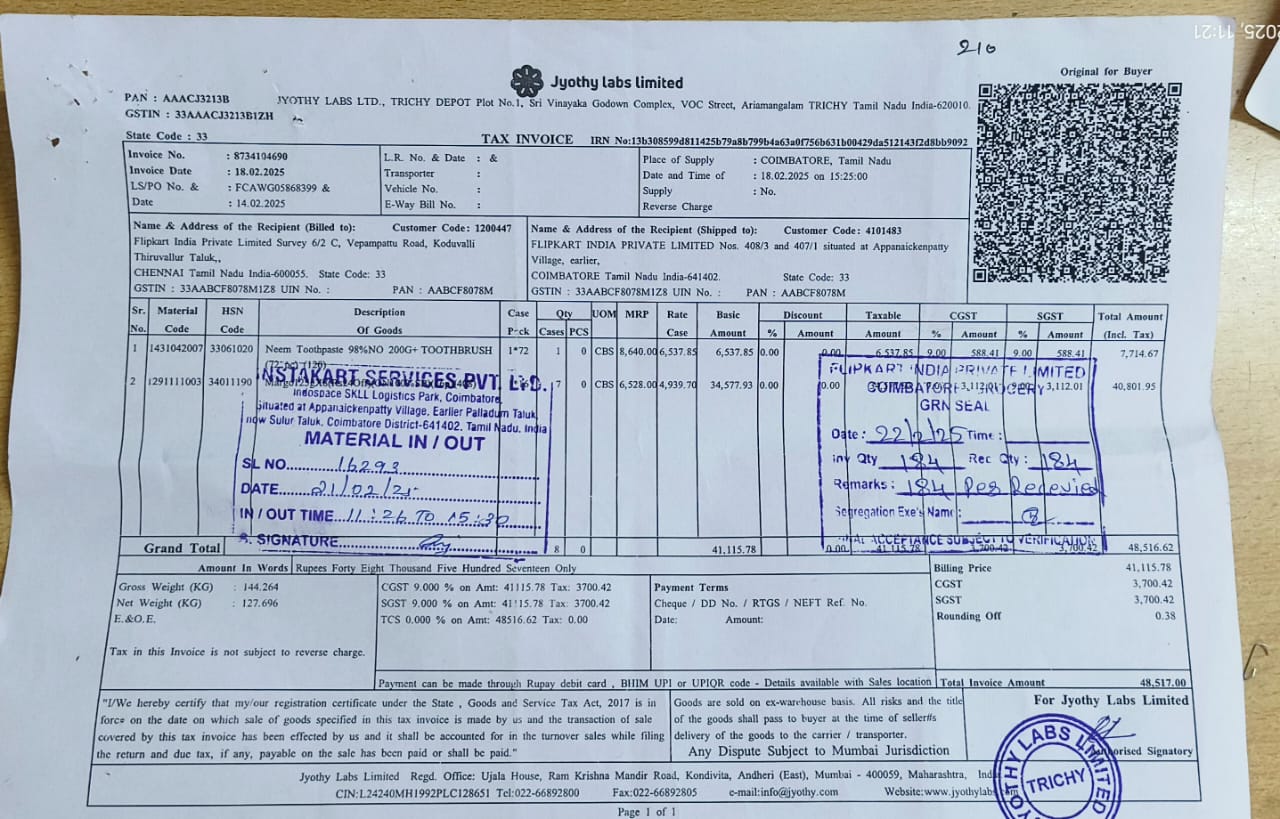 2025, 11:21
210
Jyothy labs limited
Original for Buyer
PAN : AAACJ3213B
JYOTHY LABS LTD., TRICHY DEPOT Plot No.1, Sri Vinayaka Godown Complex, VOC Street, Ariamangalam TRICHY Tamil Nadu India-620010.
GSTIN : 33AAACJ3213B1ZH
State Code : 33
TAX INVOICE IRN No:13b308599d811425b79a8b799b4a63a0f756b631b00429da512143f2d8bb9092
Invoice No. : 8734104690
Invoice Date : 18.02.2025
LS/PO No. & : FCAWG05868399 &
Date : 14.02.2025
L.R. No. & Date : &
Transporter :
Vehicle No. :
E-Way Bill No. :
Place of Supply : COIMBATORE, Tamil Nadu
Date and Time of : 18.02.2025 on 15:25:00
Supply : No.
Reverse Charge
Name & Address of the Recipient (Billed to): Customer Code: 1200447
Flipkart India Private Limited Survey 6/2 C, Vepampattu Road, Koduvalli
Thiruvallur Taluk,,
CHENNAI Tamil Nadu India-600055. State Code: 33
GSTIN : 33AABCF8078M1Z8 UIN No. : PAN : AABCF8078M
Name & Address of the Recipient (Shipped to): Customer Code: 4101483
FLIPKART INDIA PRIVATE LIMITED Nos. 408/3 and 407/1 situated at Appanaickenpatty
Village, earlier,
COIMBATORE Tamil Nadu India-641402. State Code: 33
GSTIN : 33AABCF8078M1Z8 UIN No. : PAN : AABCF8078M
Sr. Material HSN Description Case Qty UOM MRP Rate Basic Discount Taxable CGST SGST Total Amount
No. Code Code Of Goods Pack Cases PCS Case Amount % Amount Amount % Amount % Amount (Incl. Tax)
1 1431042007 33061020 Neem Toothpaste 98%NO 200G+ TOOTHBRUSH 1*72 1 0 CBS 8,640.00 6,537.85 6,537.85 0.00 0.00 6,537.85 9.00 588.41 9.00 588.41 7,714.67
2 1291111003 34011190 7 0 CBS 6,528.00 4,939.70 34,577.93 0.00 0.00 3,112.01 40,801.95
NSTAKART SERVICES PVT. LTD.
Indospace SKLL Logistics Park, Coimbatore,
Situated at Appanaickenpatty Village, Earlier Palladum Taluk,
now Sulur Taluk, Coimbatore District-641402, Tamil Nadu, India
MATERIAL IN / OUT
SL NO. 16293
DATE 21/02/25
IN / OUT TIME 11:26 TO 15:30
SIGNATURE
FLIPKART INDIA PRIVATE LIMITED
COIMBATORE GROCERY
GRN SEAL
Date : 22/2/25 Time :
Inv Qty 184 Rec Qty : 184
Remarks : 184 Pcs Recevied
Segregation Exe's Name :
ACCEPTANCE SUBJECT TO VERIFICATION
Grand Total 8 0 41,115.78 0.00 41,115.78 3,700.42 3,700.42 48,516.62
Amount In Words Rupees Forty Eight Thousand Five Hundred Seventeen Only
Gross Weight (KG) : 144.264
Net Weight (KG) : 127.696
E.&O.E.
Tax in this Invoice is not subject to reverse charge.
CGST 9.000 % on Amt: 41115.78 Tax: 3700.42
SGST 9.000 % on Amt: 41115.78 Tax: 3700.42
TCS 0.000 % on Amt: 48516.62 Tax: 0.00
Payment Terms
Cheque / DD No. / RTGS / NEFT Ref. No.
Date: Amount:
Billing Price 41,115.78
CGST 3,700.42
SGST 3,700.42
Rounding Off 0.38
Payment can be made through Rupay debit card , BHIM UPI or UPIQR code - Details available with Sales location
Total Invoice Amount 48,517.00
"I/We hereby certify that my/our registration certificate under the State , Goods and Service Tax Act, 2017 in
force on the date on which sale of goods specified in this tax invoice is made by us and the transaction of sale
covered by this tax invoice has been effected by us and it shall be accounted for in the turnover sales while filing
the return and due tax, if any, payable on the sale has been paid or shall be paid."
Goods are sold on ex-warehouse basis. All risks and the title
of the goods shall pass to buyer at the time of seller#s
delivery of the goods to the carrier / transporter.
Any Dispute Subject to Mumbai Jurisdiction
For Jyothy Labs Limited
Authorised Signatory
JYOTHY LABS LIMITED
TRICHY
Jyothy Labs Limited Regd. Office: Ujala House, Ram Krishna Mandir Road, Kondivita, Andheri (East), Mumbai - 400059, Maharashtra,
CIN:L24240MH1992PLC128651 Tel:022-66892800 Fax:022-66892805 e-mail:info@jyothy.com Website:www.jyothylabs
Page 1 of 1